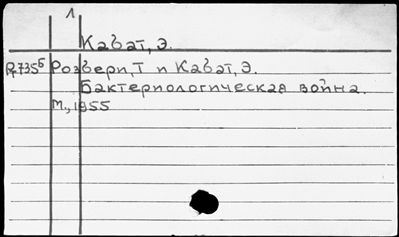 1
Кават, Э.
Р735б Розбери, Т и Кават, Э.
Бактериологическая война.
М., 1955